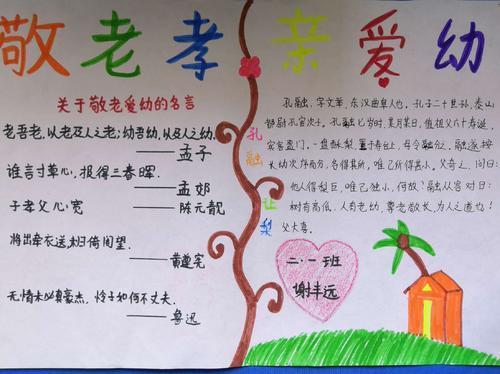 敬老孝亲爱幼
关于敬老爱幼的名言
老吾老,以及人之老;幼吾幼,以及人之幼.
——孟子
谁言寸草心,报得三春晖.
——孟郊
子孝父心宽
——陈元靓
将出牵衣送,未归倚闾望.
——黄遵宪
无情未必真豪杰,怜子如何不丈夫.
——鲁迅
孔融让梨
孔融,字文举,东汉曲阜人也。孔子二十世孙,泰山
都尉孔宙次子。孔融七岁时,某月某日,值祖父六十寿诞,
宾客盈门,一盘酥梨,置于寿台上,母令融分之,融遂按
长幼次序而分,各得其所,唯己所得甚小。父奇之,问曰:
他人得梨巨,唯己独小,何故?融从容对曰:
树有高低,人有老幼,尊老敬长,为人之道也!
父大喜。
二·一班
谢丰远